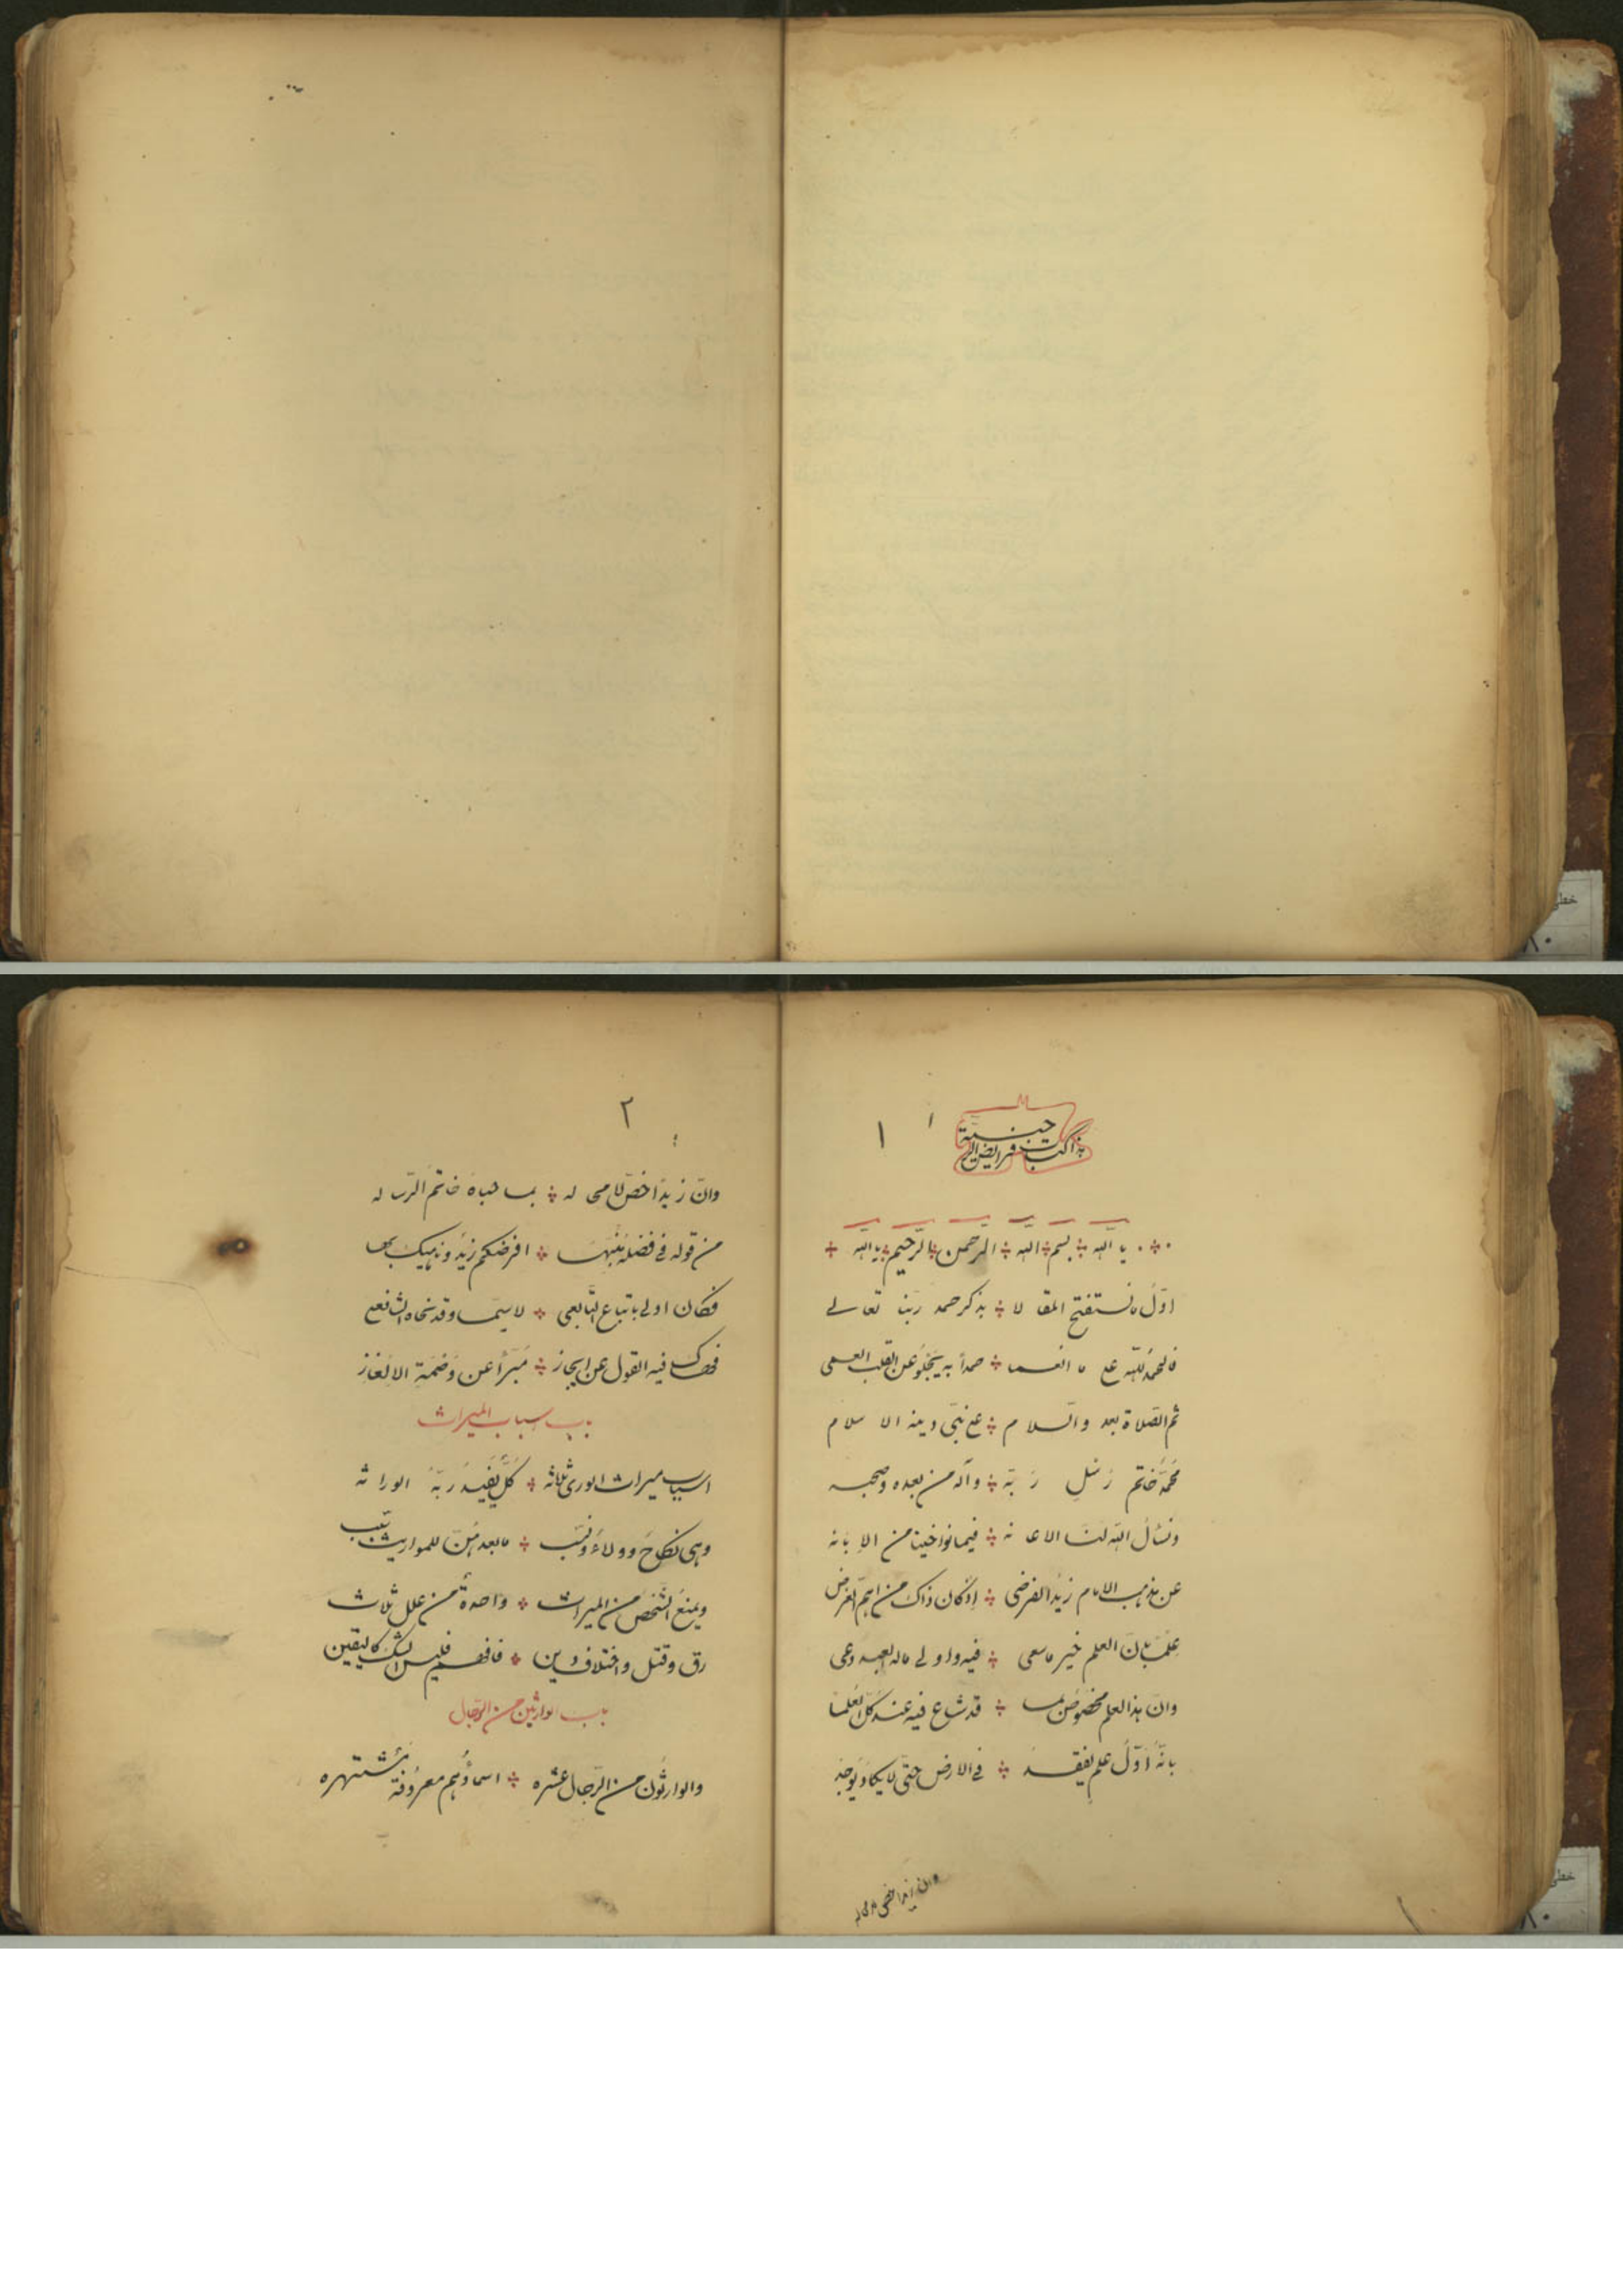 خطی
٨٠
هذا کتاب فرایض الرحبیة
١
١
یا الله بسم الله الرحمن الرحیم یا الله
اوّل ما نستفتح المقالا بذکر حمد ربّنا تعالی
فالحمد للّه علی ما انعما حمداً به یجلو عن القلب العمی
ثم الصّلاة بعد والسّلام علی نبیّ دینه الاسلام
محمّد ختم رسل ربّه وآله من بعده وصحبه
ونسأل اللّه لنا الاعانه فیما توخینا من الابانه
عن مذهب الامام زید الفرضی إذ کان ذاک من اهمّ الغرض
علماً بانّ العلم خیر ما سعی فیه واولی ما له العبد دعی
وانّ هذا العلم مخصوص بما قد شاع فیه عند کلّ العلما
بانّه اوّل علم یفقد فی الارض حتّی لا یکاد یوجد
وان زیداً خص لا محاله
٢
وانّ زیداً خصّ لا محاله بما حباه خاتم الرّساله
من قوله فی فضله منبّها افرضکم زید وناهیک بها
فکان اولی باتباع التّابعی لا سیّما وقد نحاه الشافعی
فهاک فیه القول عن ایجاز مبرّأ عن وصمة الالغاز
باب اسباب المیراث
اسباب میراث الوری ثلاثه کلّ یفید ربّه الوراثه
وهی نکاح وولاء ونسب ما بعدهنّ للمواریث سبب
ویمنع الشّخص من المیراث واحدة من علل ثلاث
رق وقتل واختلاف دین فافهم فلیس الشک کالیقین
باب الوارثین من الرّجال
والوارثون من الرّجال عشره اسماؤهم معروفة مشتهره
خطی
٨٠